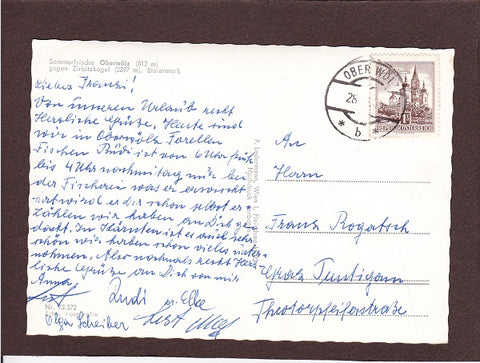 Sommerfrische Oberwölz (812 m)
gegen Zirbitzkogel (2397 m), Steiermark
Lieber Franzi!
Von unseren Urlaub recht
Herzliche Grüße, Heute sind
wir in Oberwölz Forellen
Fischen Rudi ist von 6 Uhr früh
bis 4 Uhr nachmittag mir bei
der Fischerei was er erwischt
hat wird er dir schon selbst er
zählen wir haben an Dich ge
dacht. In Kärnten ist es auch sehr
schön wir haben schon vieles unter-
nohmen. Also nochmals recht Herz
liche Grüße an Dich von mir
Anna
Rudi u. Elke
Olga Schreiber
Nr. 93.372
OBERWÖLZ
26
* b *
REPUBLIK ÖSTERREICH
An
Herrn
Franz Rogatsch
Graz Puntigam
Theodorpfeiferstraße